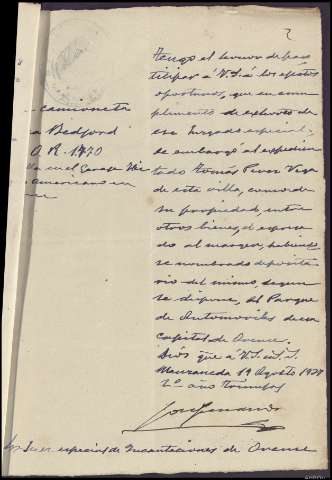 2
camioneta
Bedford
O.R. 1770
en el Garage His
americano en
tengo el honor de par
ticipar á V.S. á los efectos
oportunos, que en cum
plimento de exhorto de
ese Juzgado especial,
se embargó al expedien
tado Tomás Perez Vega
de esta villa, como de
su propiedad, entre
otros bienes, el expresa
do al margen, habiendo
se nombrado deposita
rio del mismo, segun
se dispone, al Parque
de Automóviles de esa
capital de Orense.
Dios gue á V.S. m. a.
Manzaneda 19 Agosto 1938
2º año triunfal
Sr Juez especial de Incautaciones de Orense